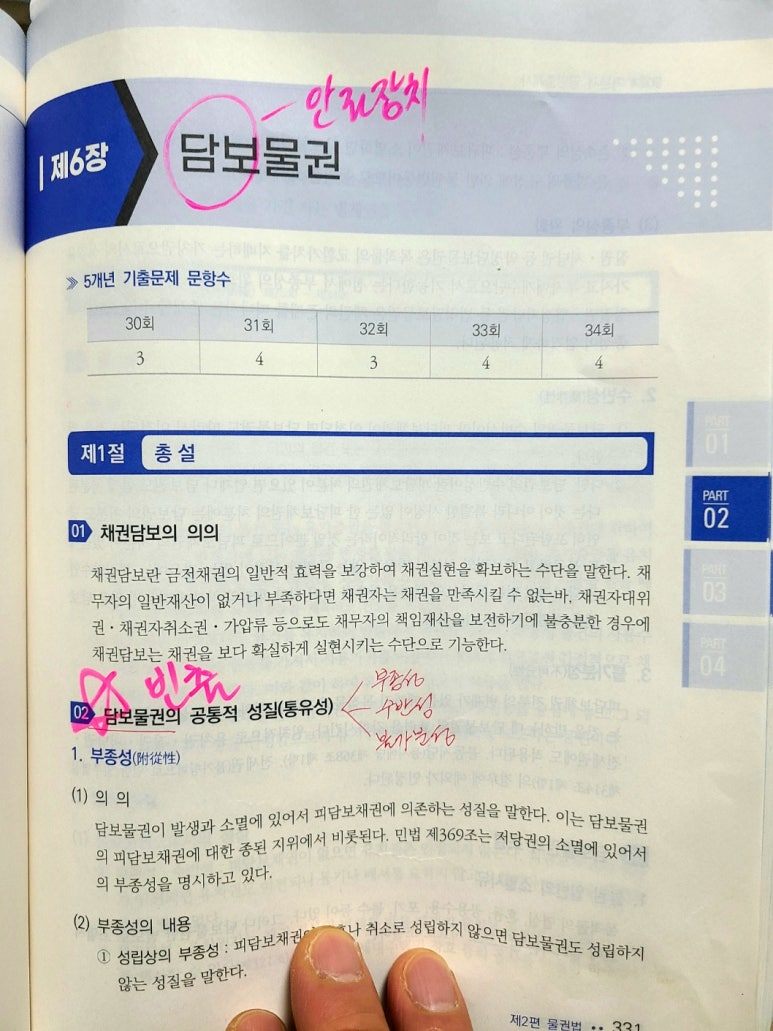 안전장치
제6장 담보물권
5개년 기출문제 문항수
30회 31회 32회 33회 34회
3 4 3 4 4
제1절 총 설
PART
01
PART
02
PART
03
PART
04
01 채권담보의 의의
채권담보란 금전채권의 일반적 효력을 보강하여 채권실현을 확보하는 수단을 말한다. 채
무자의 일반재산이 없거나 부족하다면 채권자는 채권을 만족시킬 수 없는바, 채권자대위
권·채권자취소권·가압류 등으로도 채무자의 책임재산을 보전하기에 불충분한 경우에
채권담보는 채권을 보다 확실하게 실현시키는 수단으로 기능한다.
빈출
02 담보물권의 공통적 성질(통유성)
부종성
수반성
불가분성
1. 부종성(附從性)
(1) 의 의
담보물권이 발생과 소멸에 있어서 피담보채권에 의존하는 성질을 말한다. 이는 담보물권
의 피담보채권에 대한 종된 지위에서 비롯된다. 민법 제369조는 저당권의 소멸에 있어서
의 부종성을 명시하고 있다.
(2) 부종성의 내용
① 성립상의 부종성 : 피담보채권이 취소로 성립하지 않으면 담보물권도 성립하지
않는 성질을 말한다.
제2편 물권법 •• 331